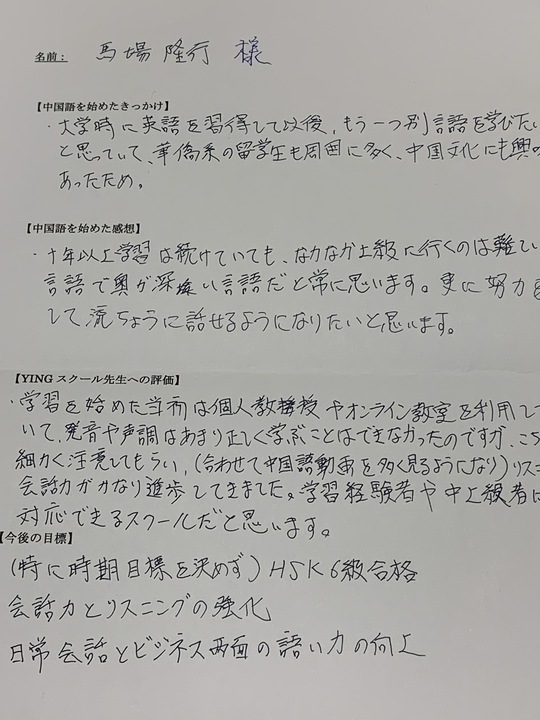 名前： 馬場 隆行 様
【中国語を始めたきっかけ】
・大学時に英語を習得して以後，もう一つ別言語を学びたい
と思っていて、華僑系の留学生も周囲に多く、中国文化にも興
あったため。
【中国語を始めた感想】
・十年以上学習は続けていても、なかなか上級に行くのは難しい
言語で奥が深い言語だと常に思います。更に努力を
して流ちょうに話せるようになりたいと思います。
【YING スクール先生への評価】
・学習を始めた当初は個人教授やオンライン教室を利用して
いて、発音や声調はあまり正しく学ぶことはできなかったのですが、こち
細かく注意してもらい，(合わせて中国語動画を多く見るようになり)リス
会話力がかなり進歩してきました。学習経験者や中上級者に
対応できるスクールだと思います。
【今後の目標】
(特に時期目標を決めず) HSK 6級合格
会話力とリスニングの強化
日常会話とビジネス両面の語い力の向上